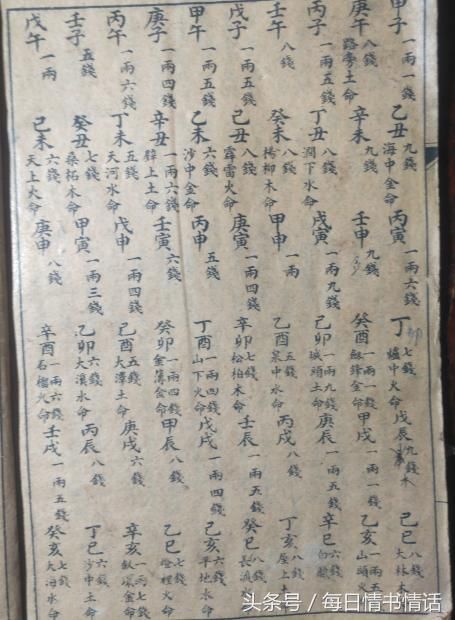 甲子 一兩一錢 乙丑 九錢 海中金命 丙寅 一兩六錢 丁卯 七錢 爐中火命 戊辰 九錢 木 己巳 八錢 大林木
庚午 八錢 路旁土命 辛未 九錢 壬申 九錢 癸酉 一兩一錢 劍鋒金命 甲戌 一兩一錢 乙亥 一兩五 山頭火
丙子 一兩五錢 丁丑 八錢 澗下水命 戊寅 一兩九錢 己卯 一兩九錢 城頭土命 庚辰 一兩五錢 辛巳 六錢 白
壬午 八錢 癸未 八錢 楊柳木命 甲申 一兩 乙酉 五錢 泉中水命 丙戌 八錢 丁亥 八錢 屋上
戊子 一兩五錢 己丑 八錢 霹雷火命 庚寅 一兩四錢 辛卯 七錢 松柏木命 壬辰 一兩五錢 癸巳 八錢 長流
甲午 一兩五錢 乙未 六錢 沙中金命 丙申 五錢 丁酉 一兩四錢 山下火命 戊戌 一兩四錢 己亥 六錢 平地水命
庚子 一兩四錢 辛丑 一兩六錢 壁上土命 壬寅 六錢 癸卯 一兩四錢 金薄金命 甲辰 八錢 乙巳 七錢 燈裡火命
丙午 一兩六錢 丁未 五錢 天河水命 戊申 一兩四錢 己酉 五錢 大澤土命 庚戌 六錢 辛亥 一兩七錢 釵環金命
壬子 五錢 癸丑 七錢 桑柘木命 甲寅 一兩三錢 乙卯 六錢 大溪水命 丙辰 八錢 丁巳 六錢 沙中土命
戊午 一兩 己未 六錢 天上火命 庚申 八錢 辛酉 一兩六錢 石榴火命 壬戌 一兩五錢 癸亥 七錢 大海水命
头条号 / 每日情书情话